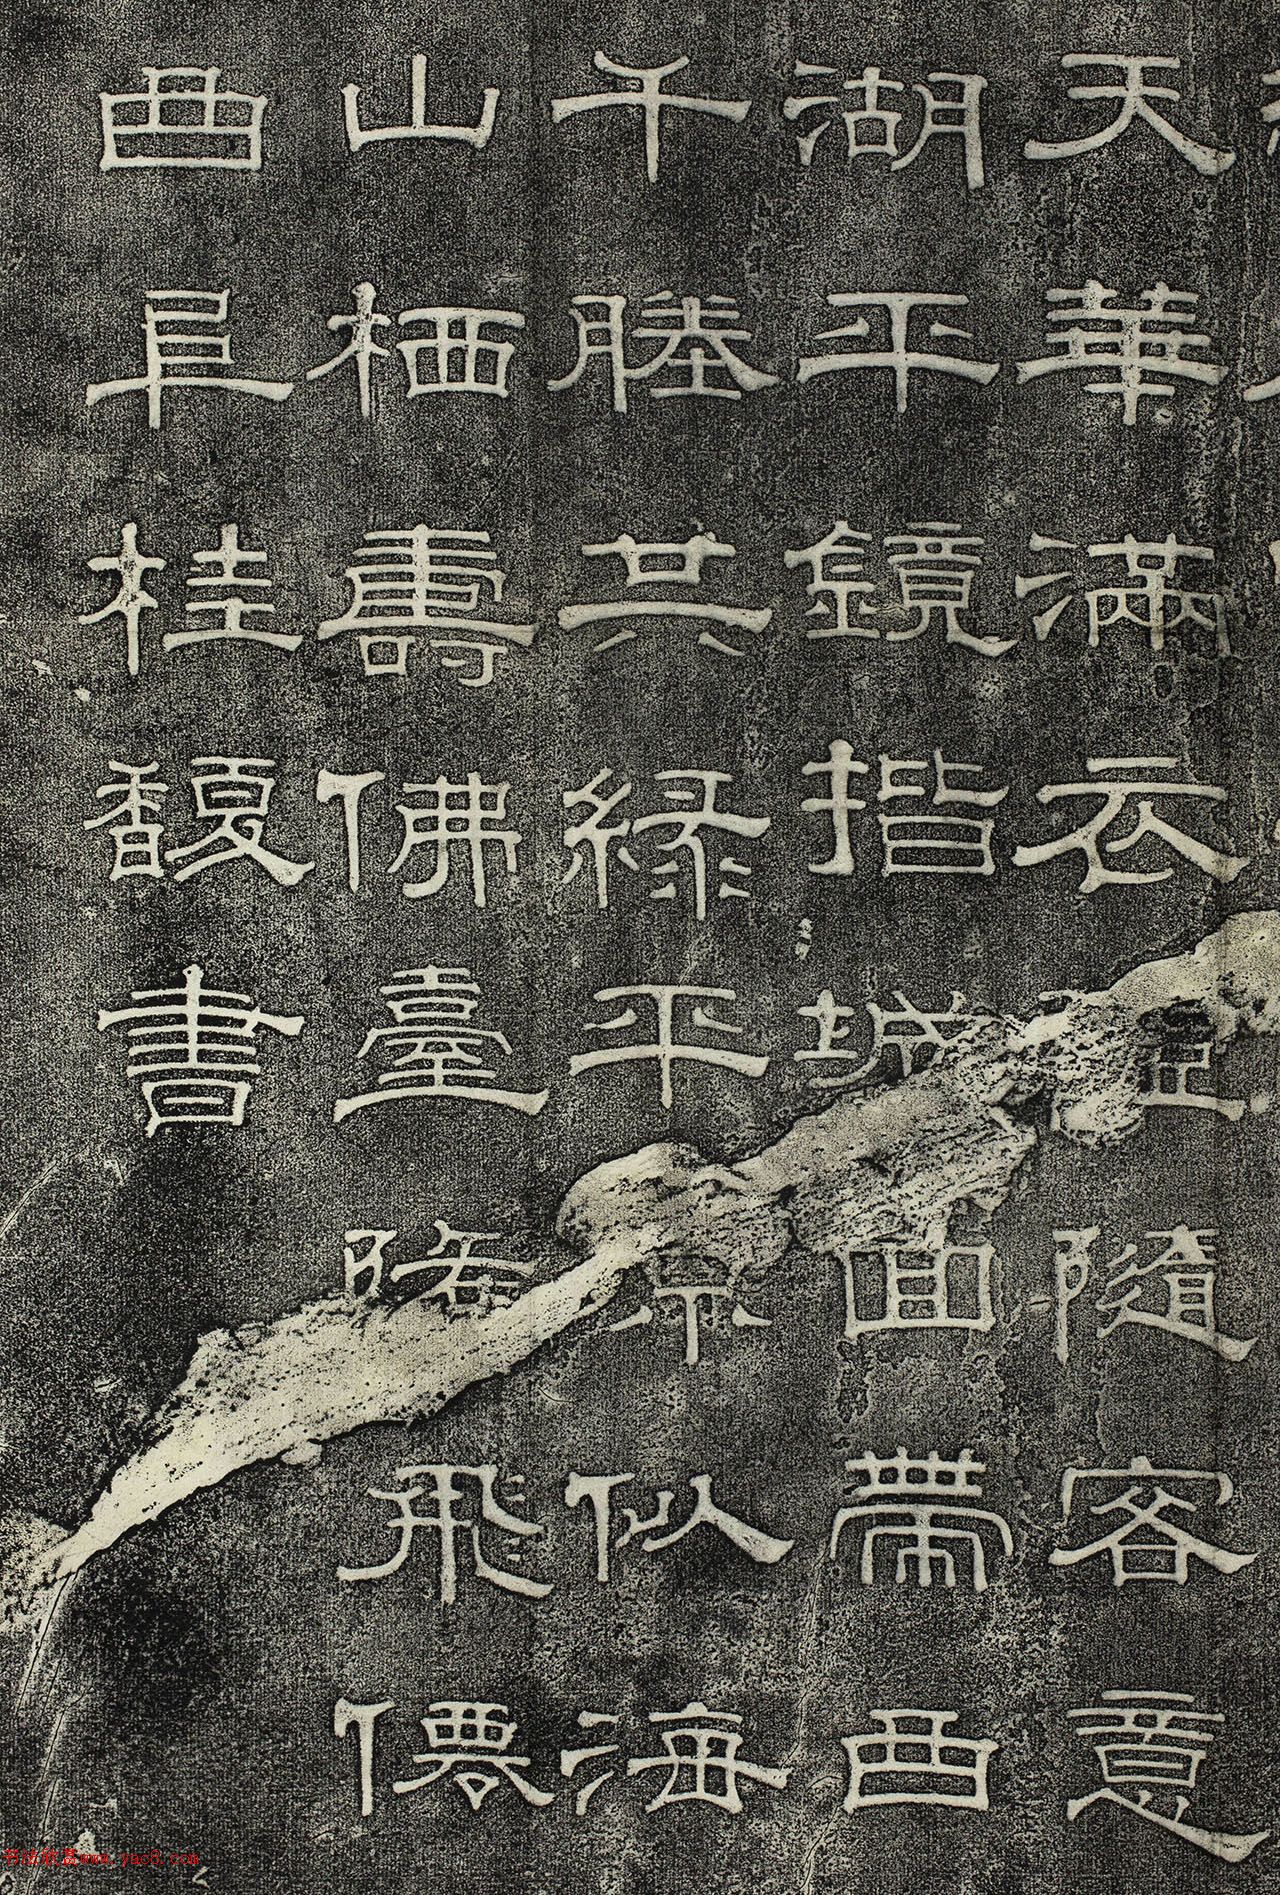 天華滿云隨客意
湖平鏡揩城回帶曲
千塍共綠平原似海
山栖壽佛臺降飛僊
曲阜桂馥書
书法欣赏www.yac8.com